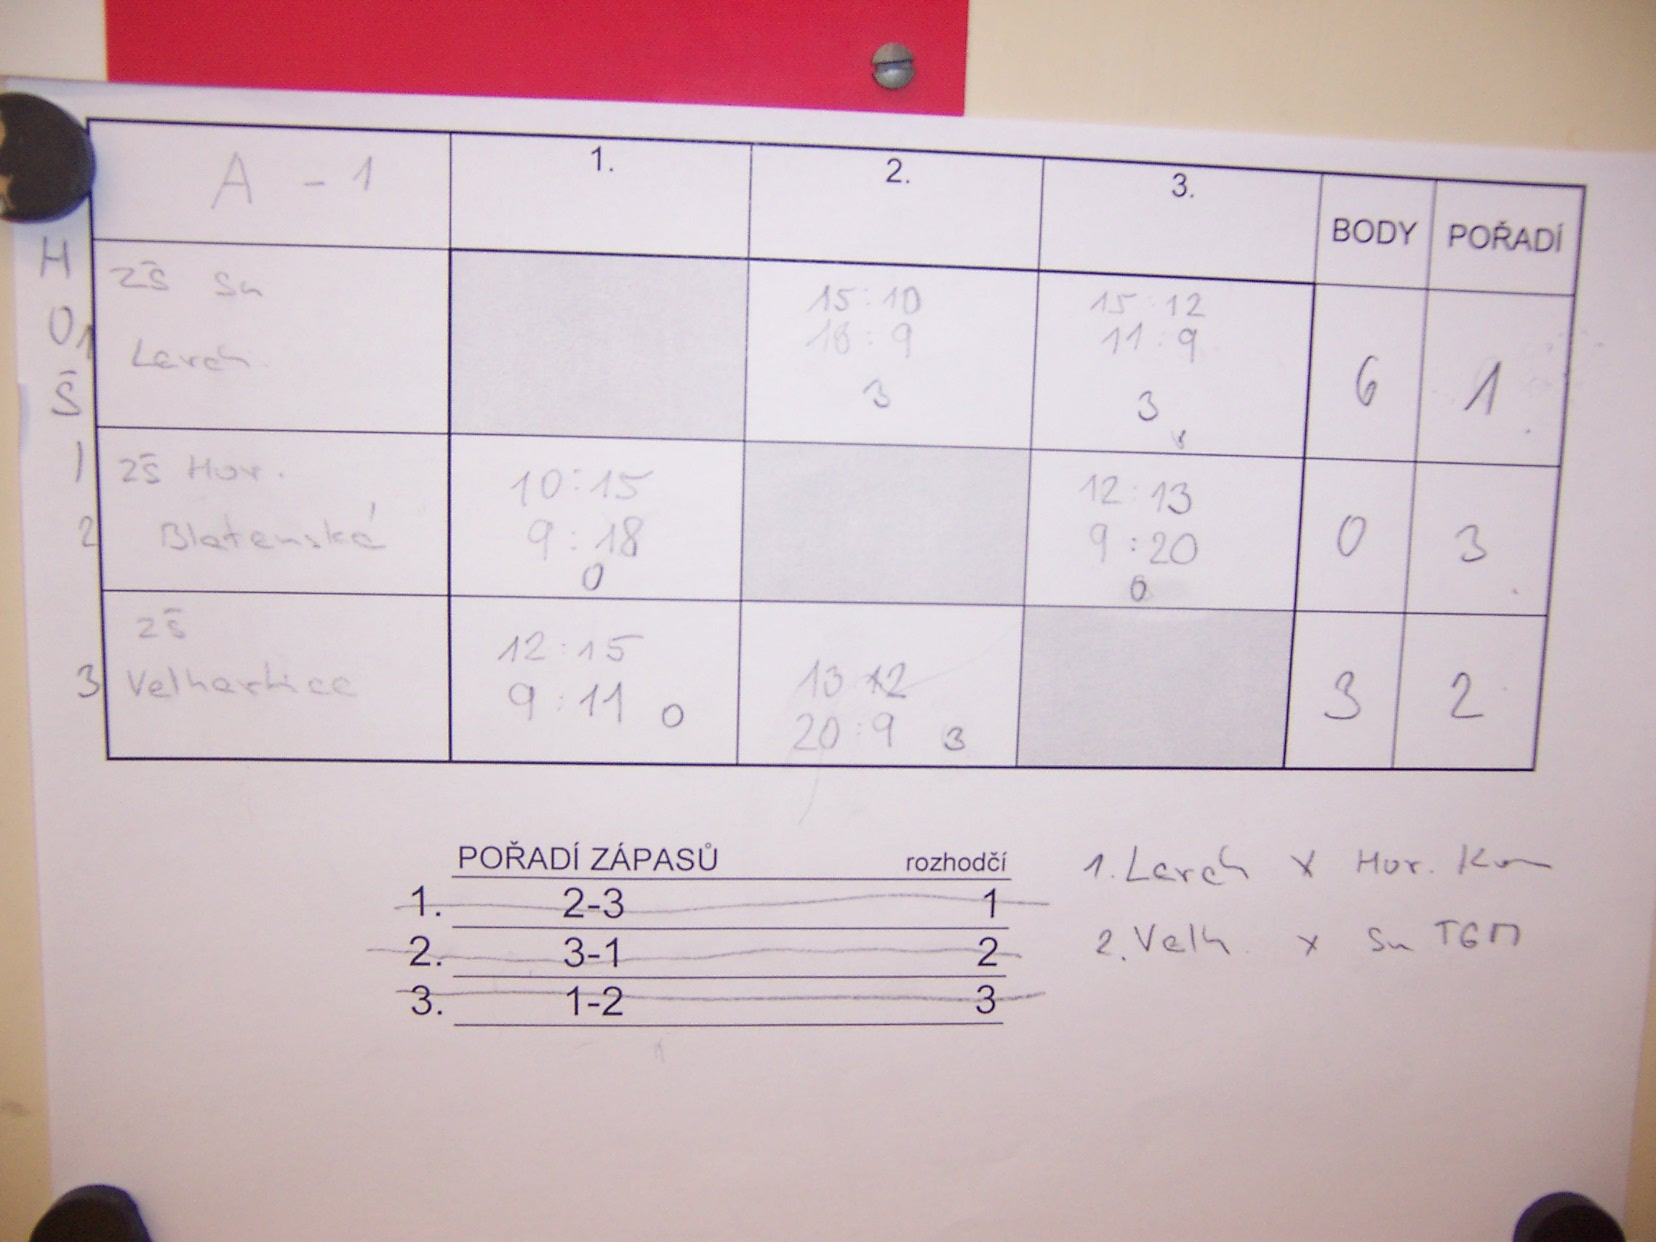 A - 1 1. 2. 3. BODY POŘADÍ
HOŠI
1 ZŠ Su 15:10 15:12
Lerch 18:9 11:9 6 1
3 3
ZŠ Hor. 10:15 12:13
2 Blatenská 9:18 9:20 0 3
0 0
ZŠ 12:15 13:12
3 Velhartice 9:11 0 20:9 3 3 2
POŘADÍ ZÁPASŮ rozhodčí
1. 2-3 1
2. 3-1 2
3. 1-2 3
1. Lerch x Hor.
2. Velh. x Su TGM